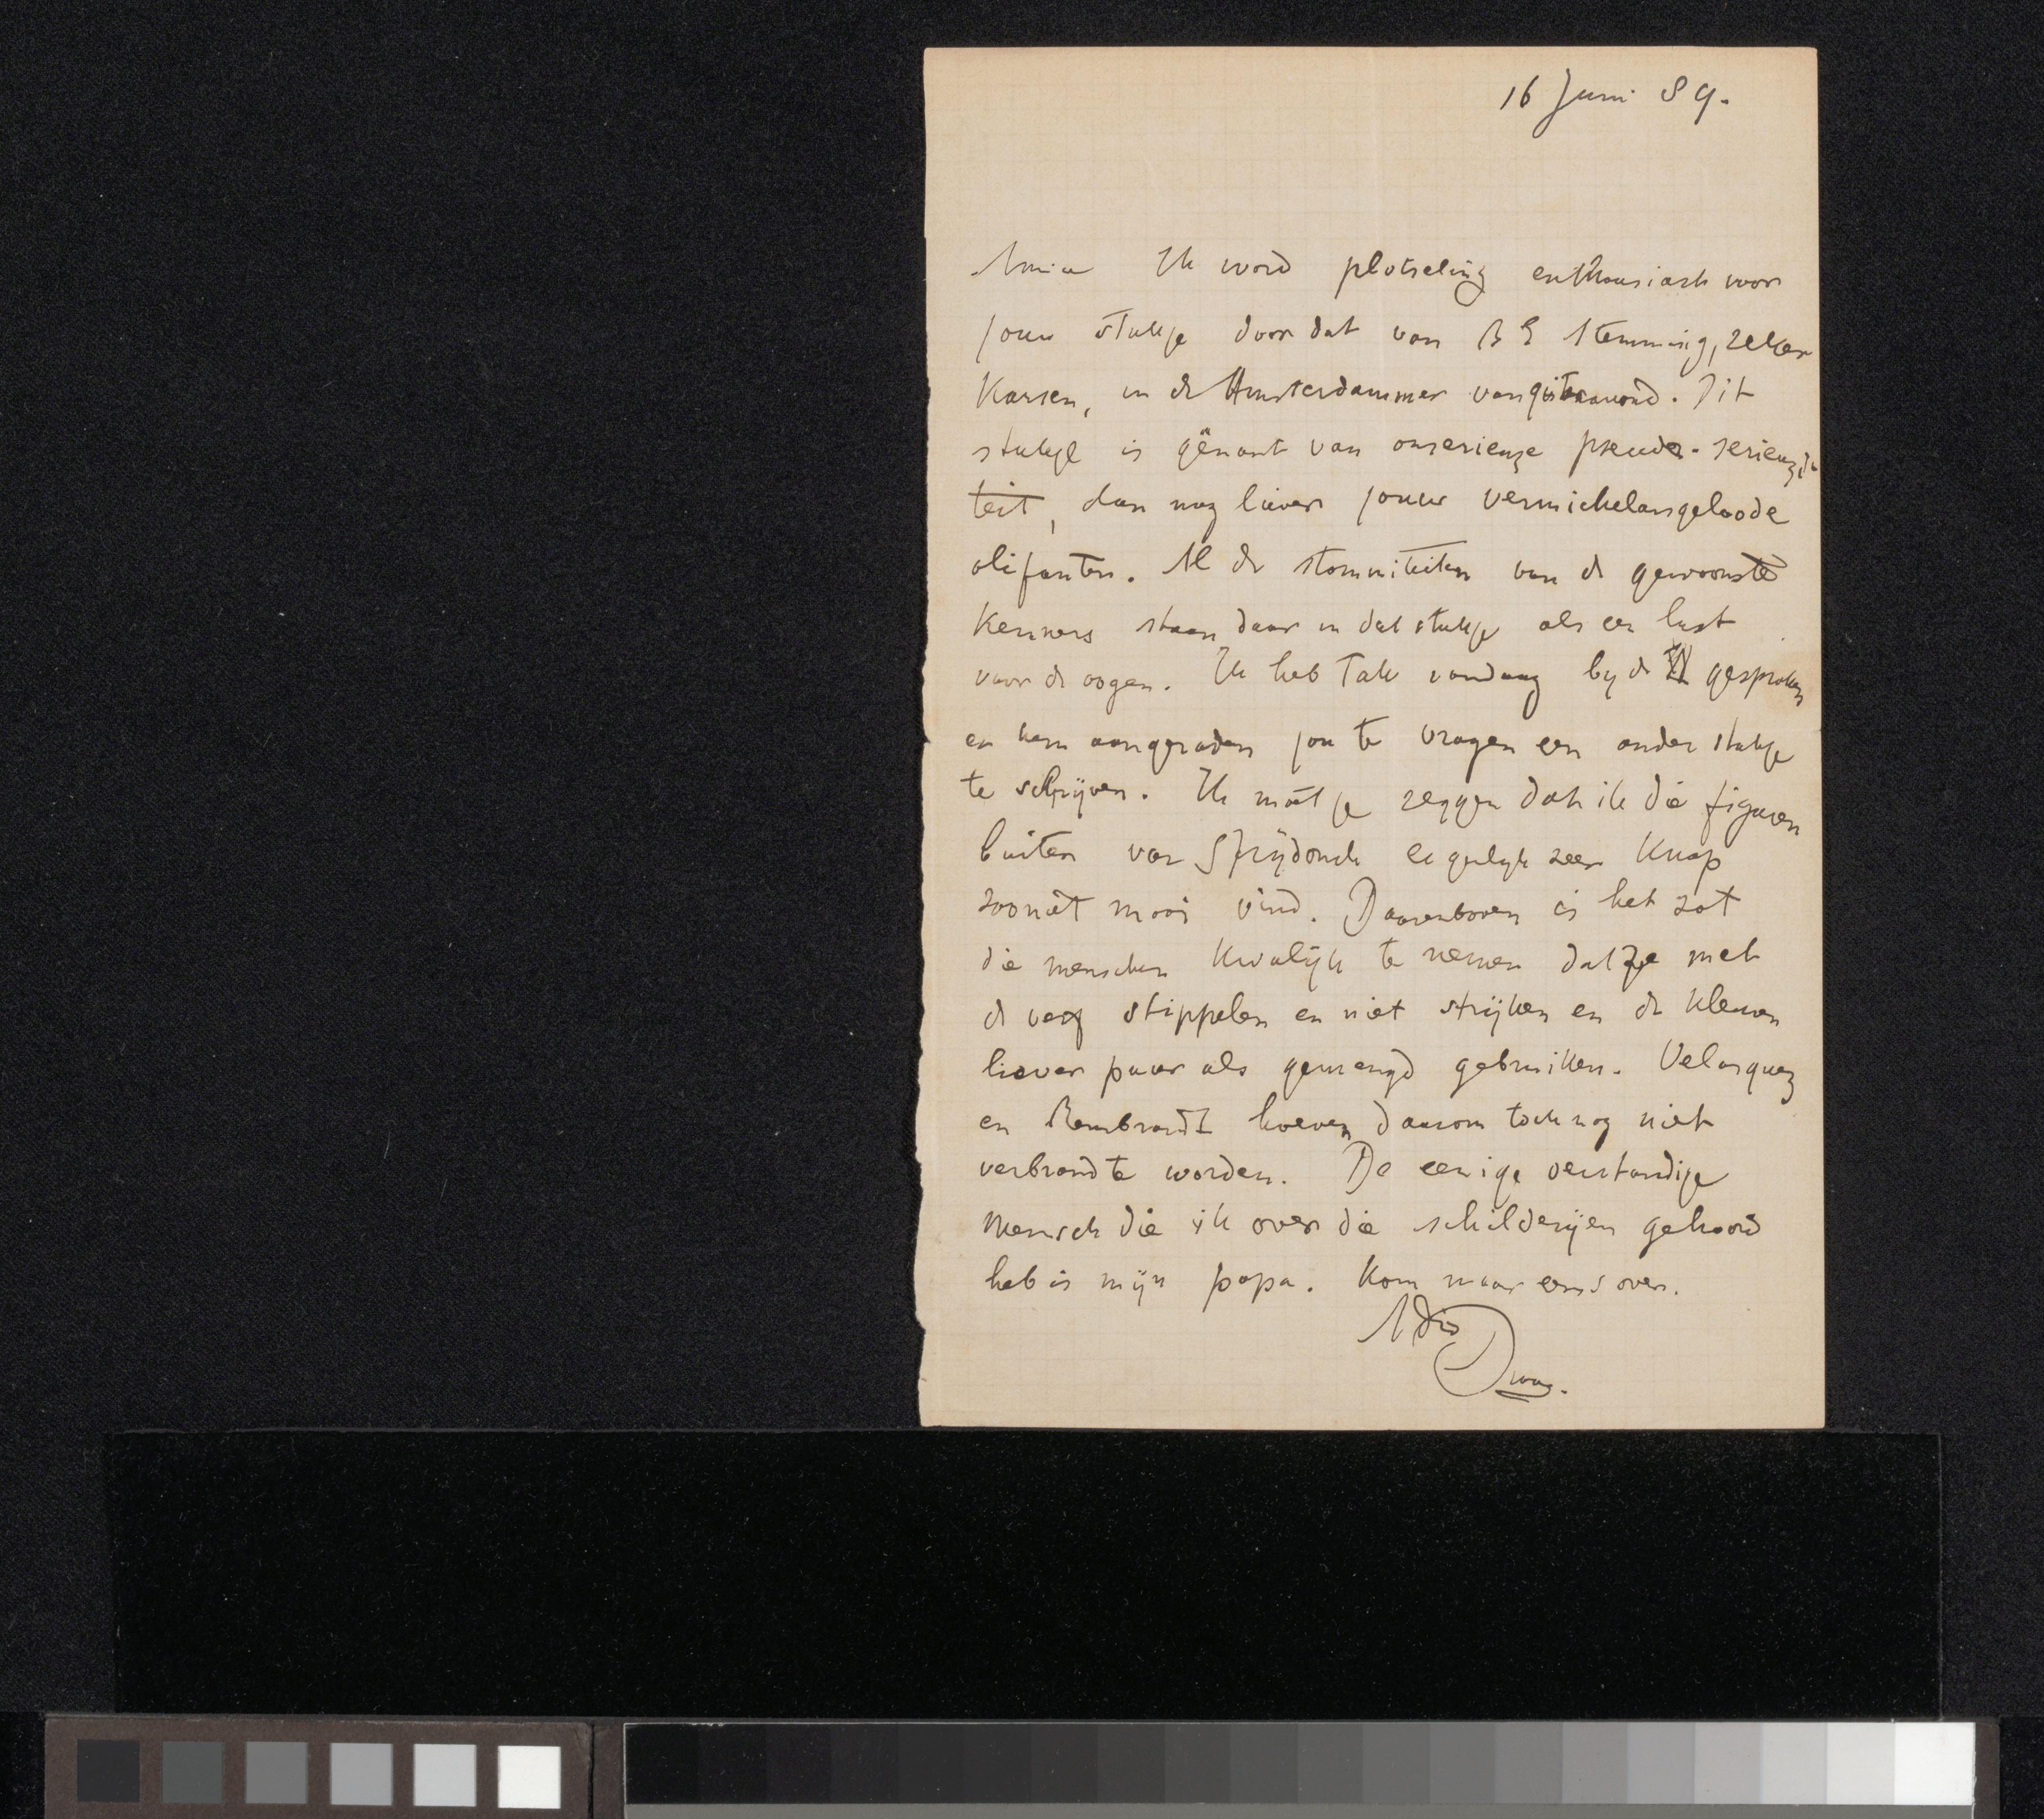 16 Juni 89.
Amice Ik word plotseling enthousiast voor
jouw stukje door dat van B E Stemming, zeker
Karsen, in de Amsterdammer van gisteravond. Dit
stukje is gênant van onserieuze pseudo-serieuzi-
teit, dan nog liever jouw vermichelangeloode
olifanten. Al de stommiteiten van de gewoonste
Kenners staan daar in dat stukje als een lust
voor de oogen. Ik heb Tak vandaag by de gesproken
en hem aangeraden jou te vragen een ander stukje
te schrijven. Ik moet je zeggen dat ik die figuren
buiten van Strijdonck eigenlyk zeer Knap
zooniet mooi vind. Daarenboven is het zot
die menschen Kwalijk te nemen dat ze met
de verf stippelen en niet strijken en de kleuren
liever puur als gemengd gebruiken. Velasquez
en Rembrandt hoeven daarom toch nog niet
verbrand te worden. De eenige verstandige
mensch die ik over die schilderijen gehoord
heb is mijn papa. Kom maar eens over.
Adio